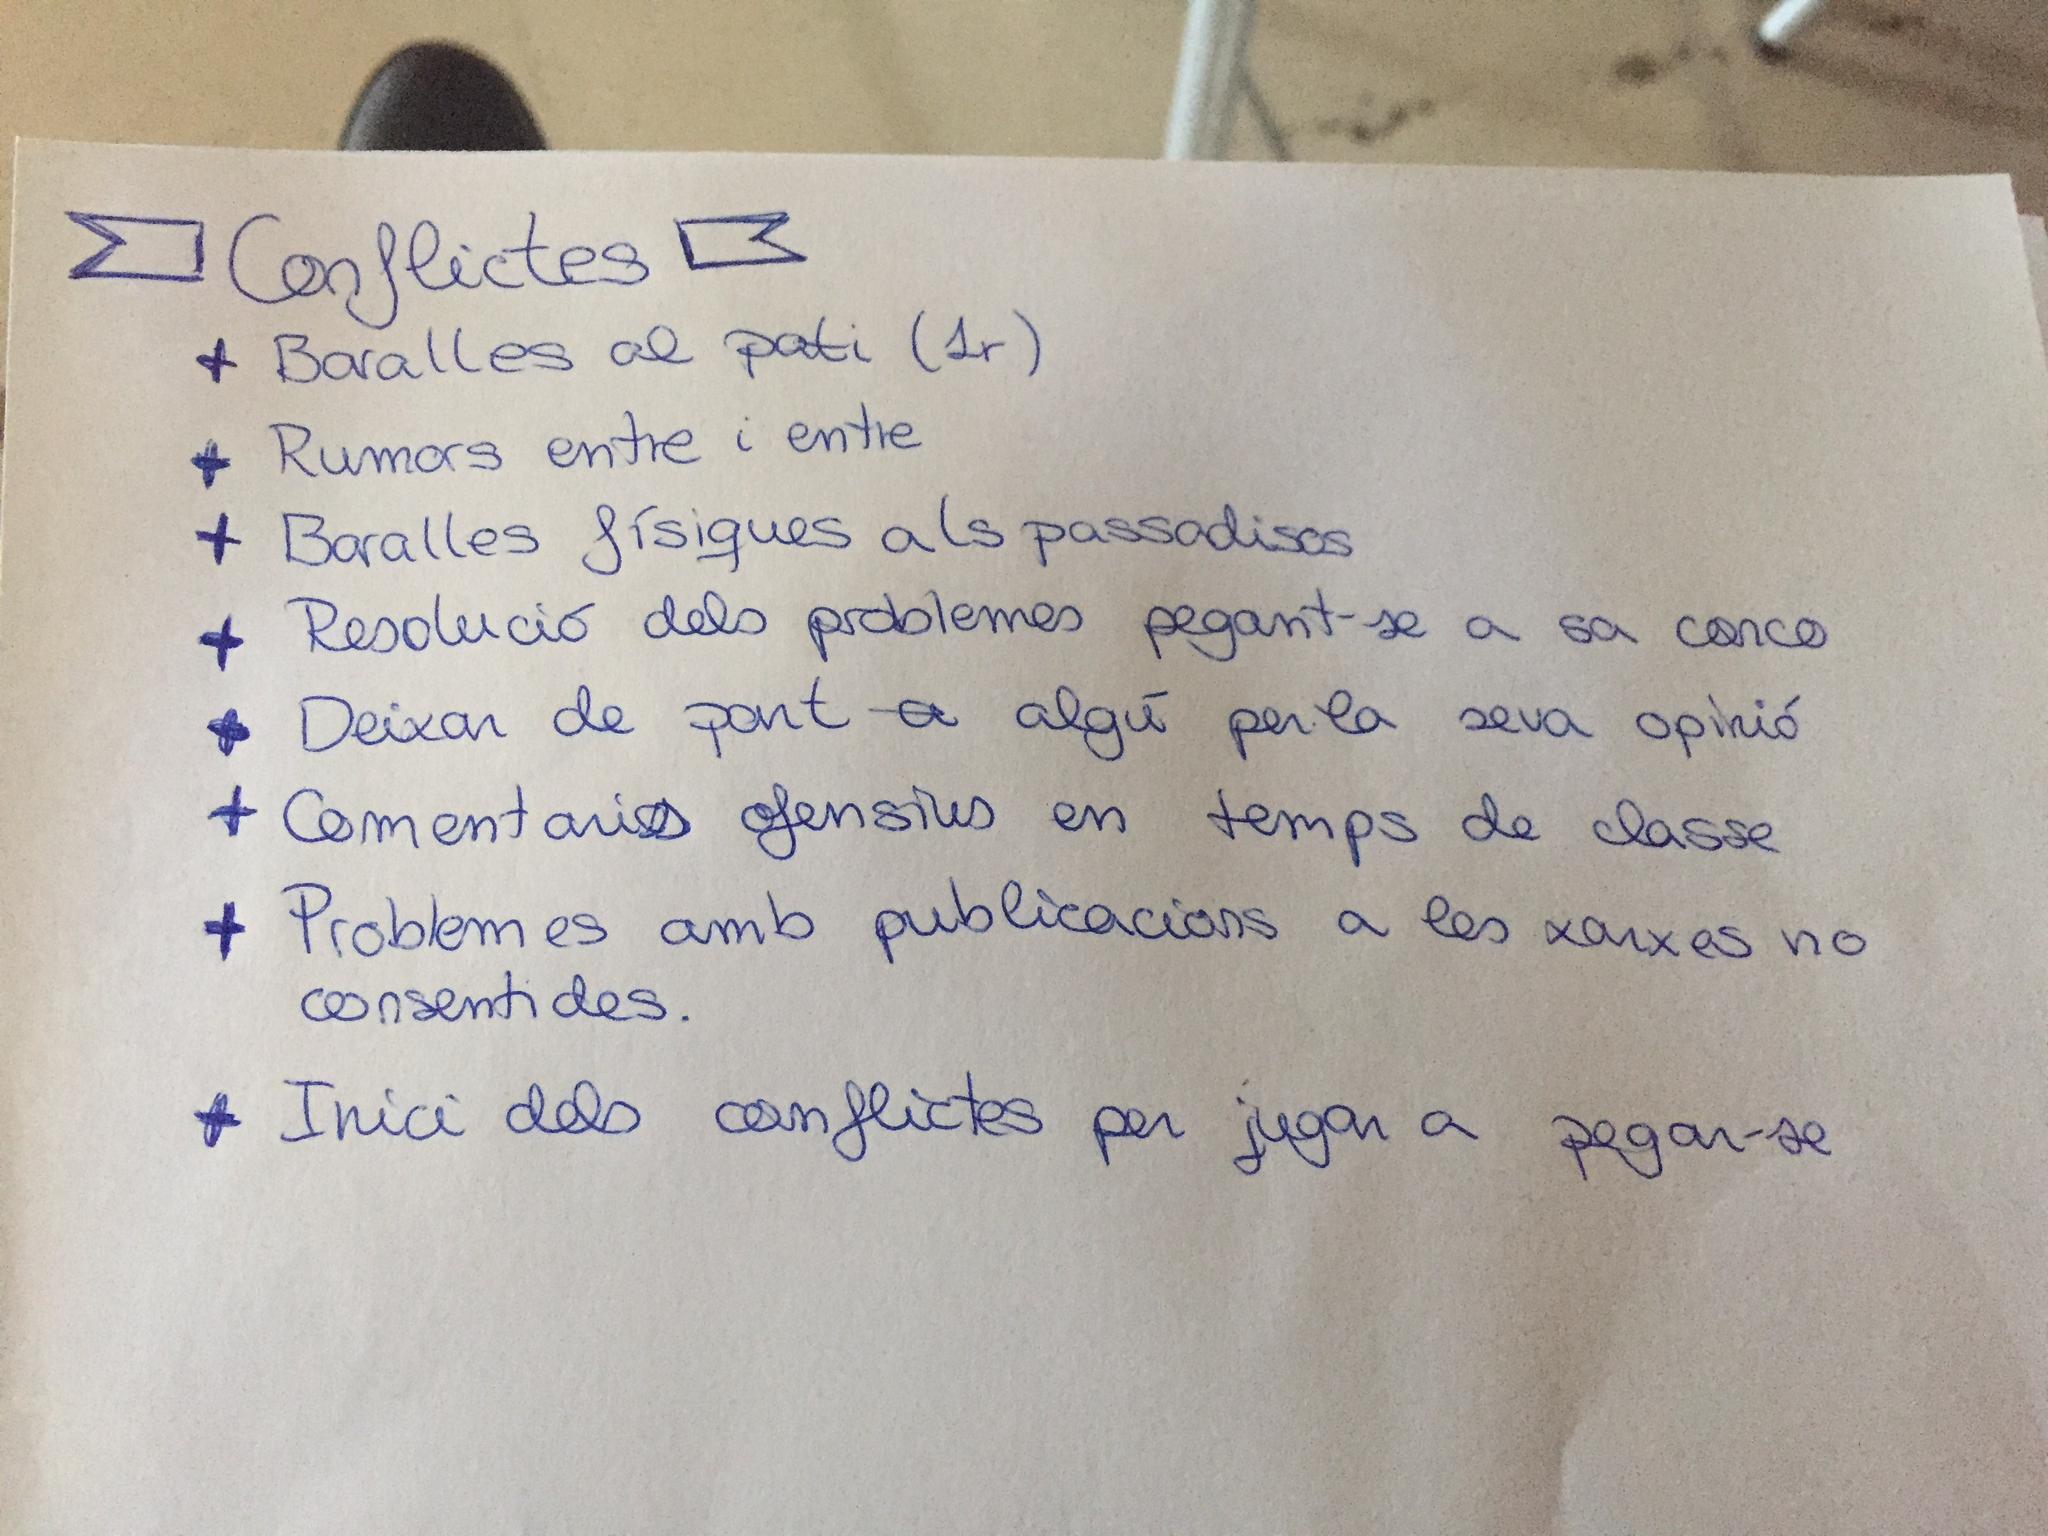 Conflictes
+ Baralles al pati (1r)
+ Rumors entre i entre
+ Baralles físiques als passadisos
+ Resolució dels problemes pegant-se a sa corco
+ Deixar de part a algú per la seva opinió
+ Comentaris ofensius en temps de classe
+ Problemes amb publicacions a les xarxes no
consentides.
+ Inici dels conflictes per jugar a pegar-se